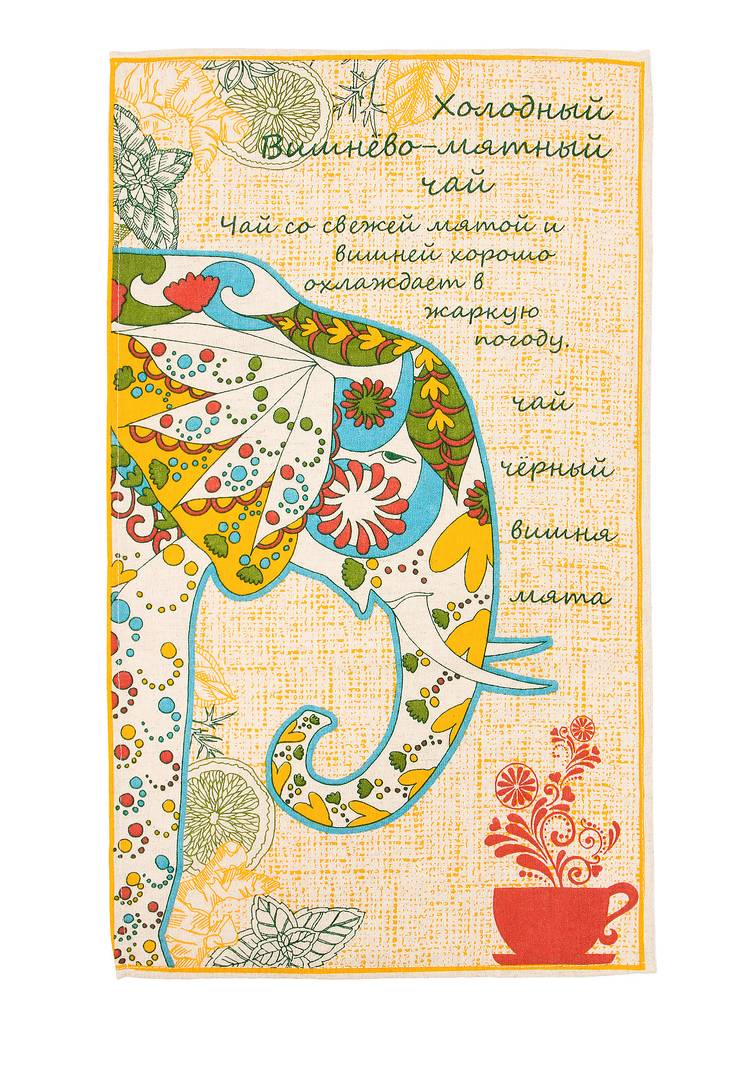 Холодный
Вишнёво-мятный
чай
Чай со свежей мятой и
вишней хорошо
охлаждает в
жаркую
погоду.
чай
чёрный
вишня
мята